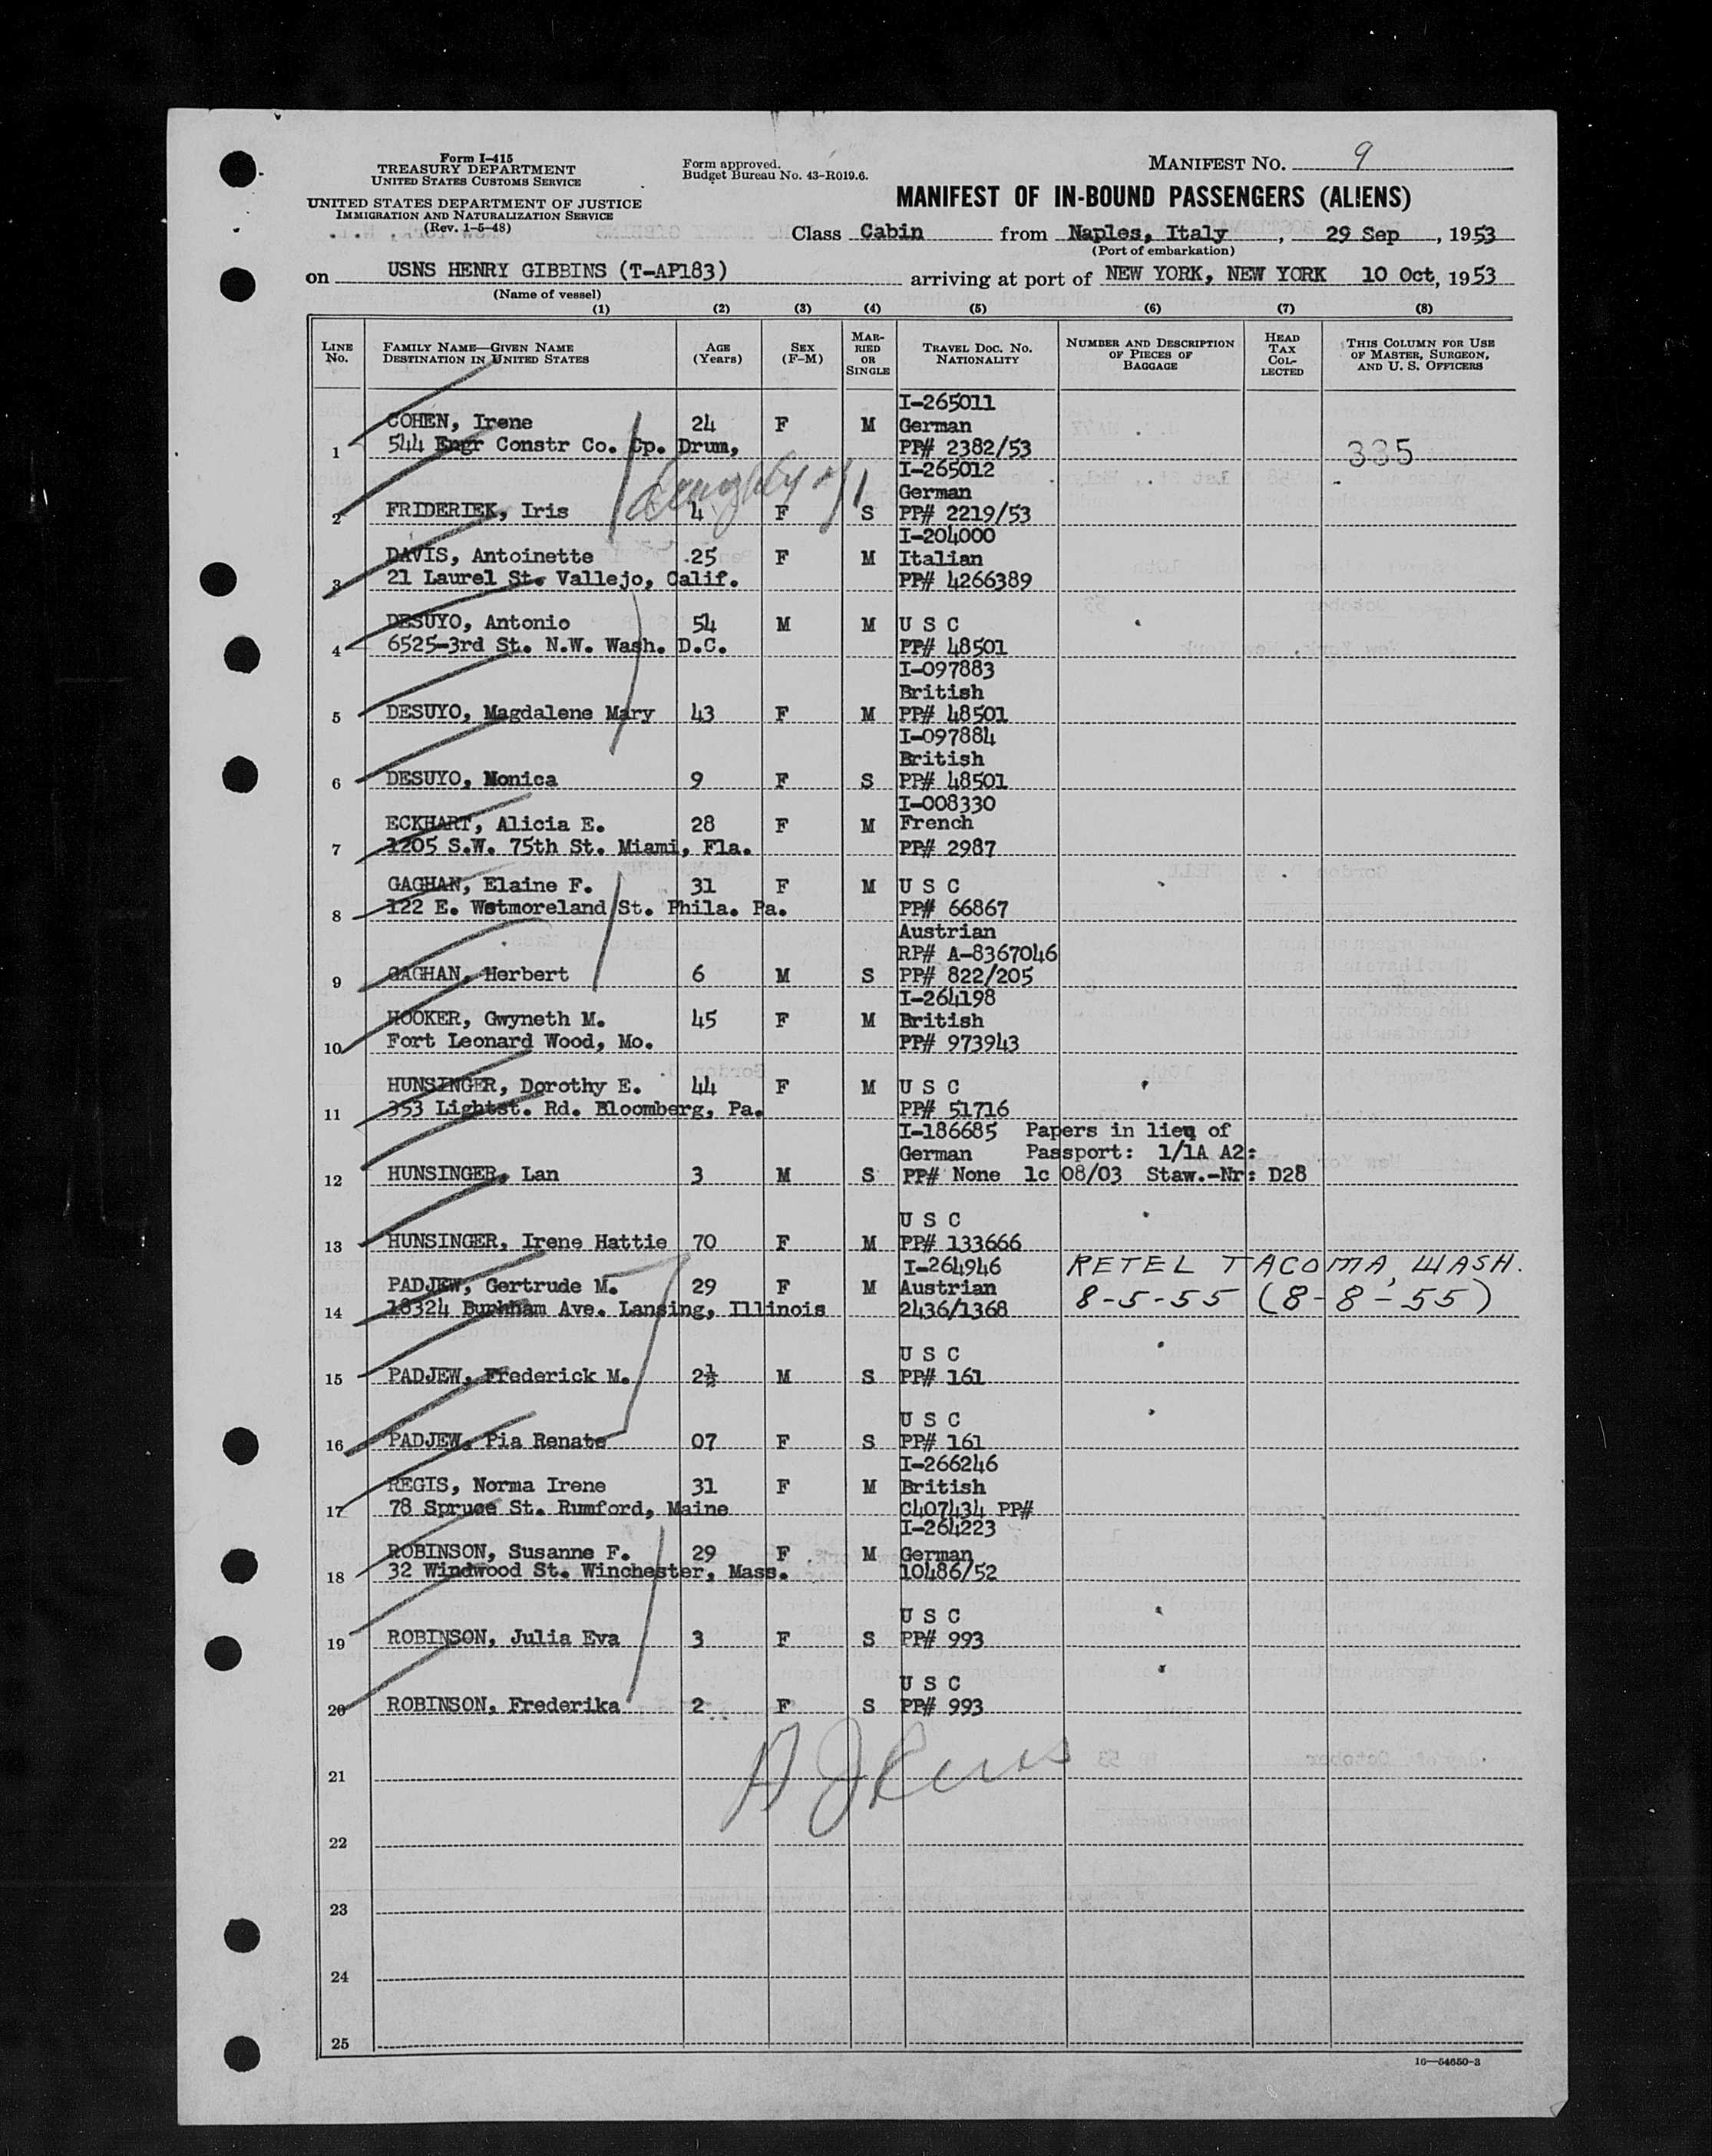 Form I-415
TREASURY DEPARTMENT
UNITED STATES CUSTOMS SERVICE
UNITED STATES DEPARTMENT OF JUSTICE
IMMIGRATION AND NATURALIZATION SERVICE
(Rev. 1-5-48)
Form approved.
Budget Bureau No. 43-R019.6.
MANIFEST NO. 9
MANIFEST OF IN-BOUND PASSENGERS (ALIENS)
Class Cabin from Naples, Italy, 29 Sep, 1953
(Port of embarkation)
on USNS HENRY GIBBINS (T-AP183) arriving at port of NEW YORK, NEW YORK 10 Oct, 1953
(Name of vessel)
(1) (2) (3) (4) (5) (6) (7) (8)
LINE No.
FAMILY NAME—GIVEN NAME
DESTINATION IN UNITED STATES
AGE (Years)
SEX (F-M)
MARRIED OR SINGLE
TRAVEL DOC. NO.
NATIONALITY
NUMBER AND DESCRIPTION OF PIECES OF BAGGAGE
HEAD TAX COLLECTED
THIS COLUMN FOR USE OF MASTER, SURGEON, AND U. S. OFFICERS
I-265011
COHEN, Irene 24 F M German
1 544 Engr Constr Co. Cp. Drum, PP# 2382/53 335
I-265012
daughter of 1 German
2 FRIDERIEK, Iris 4 F S PP# 2219/53
I-204000
DAVIS, Antoinette 25 F M Italian
3 21 Laurel St. Vallejo, Calif. PP# 4266389
DESUYO, Antonio 54 M M U S C
4 6525-3rd St. N.W. Wash. D.C. PP# 48501
I-097883
British
5 DESUYO, Magdalene Mary 43 F M PP# 48501
I-097884
British
6 DESUYO, Monica 9 F S PP# 48501
I-008330
ECKHART, Alicia E. 28 F M French
7 1205 S.W. 75th St. Miami, Fla. PP# 2987
GAGHAN, Elaine F. 31 F M U S C
8 122 E. Wstmoreland St. Phila. Pa. PP# 66867
Austrian
RP# A-8367046
9 GAGHAN, Herbert 6 M S PP# 822/205
I-264198
HOOKER, Gwyneth M. 45 F M British
10 Fort Leonard Wood, Mo. PP# 973943
HUNSINGER, Dorothy E. 44 F M U S C
11 353 Lightst. Rd. Bloomberg, Pa. PP# 51716
I-186685 Papers in lieu of
German Passport: 1/1A A2:
12 HUNSINGER, Lan 3 M S PP# None 1c 08/03 Staw.-Nr: D28
U S C
13 HUNSINGER, Irene Hattie 70 F M PP# 133666
I-264946 RETEL TACOMA, WASH.
PADJEW, Gertrude M. 29 F M Austrian 8-5-55 (8-8-55)
14 18324 Burnham Ave. Lansing, Illinois 2436/1368
U S C
15 PADJEW, Frederick M. 2½ M S PP# 161
U S C
16 PADJEW, Pia Renate 07 F S PP# 161
I-266246
REGIS, Norma Irene 31 F M British
17 78 Spruce St. Rumford, Maine C407434 PP#
I-264223
ROBINSON, Susanne F. 29 F M German
18 32 Windwood St. Winchester, Mass. 10486/52
U S C
19 ROBINSON, Julia Eva 3 F S PP# 993
U S C
20 ROBINSON, Frederika 2 F S PP# 993
21
22
23
24
25
16—54650-3